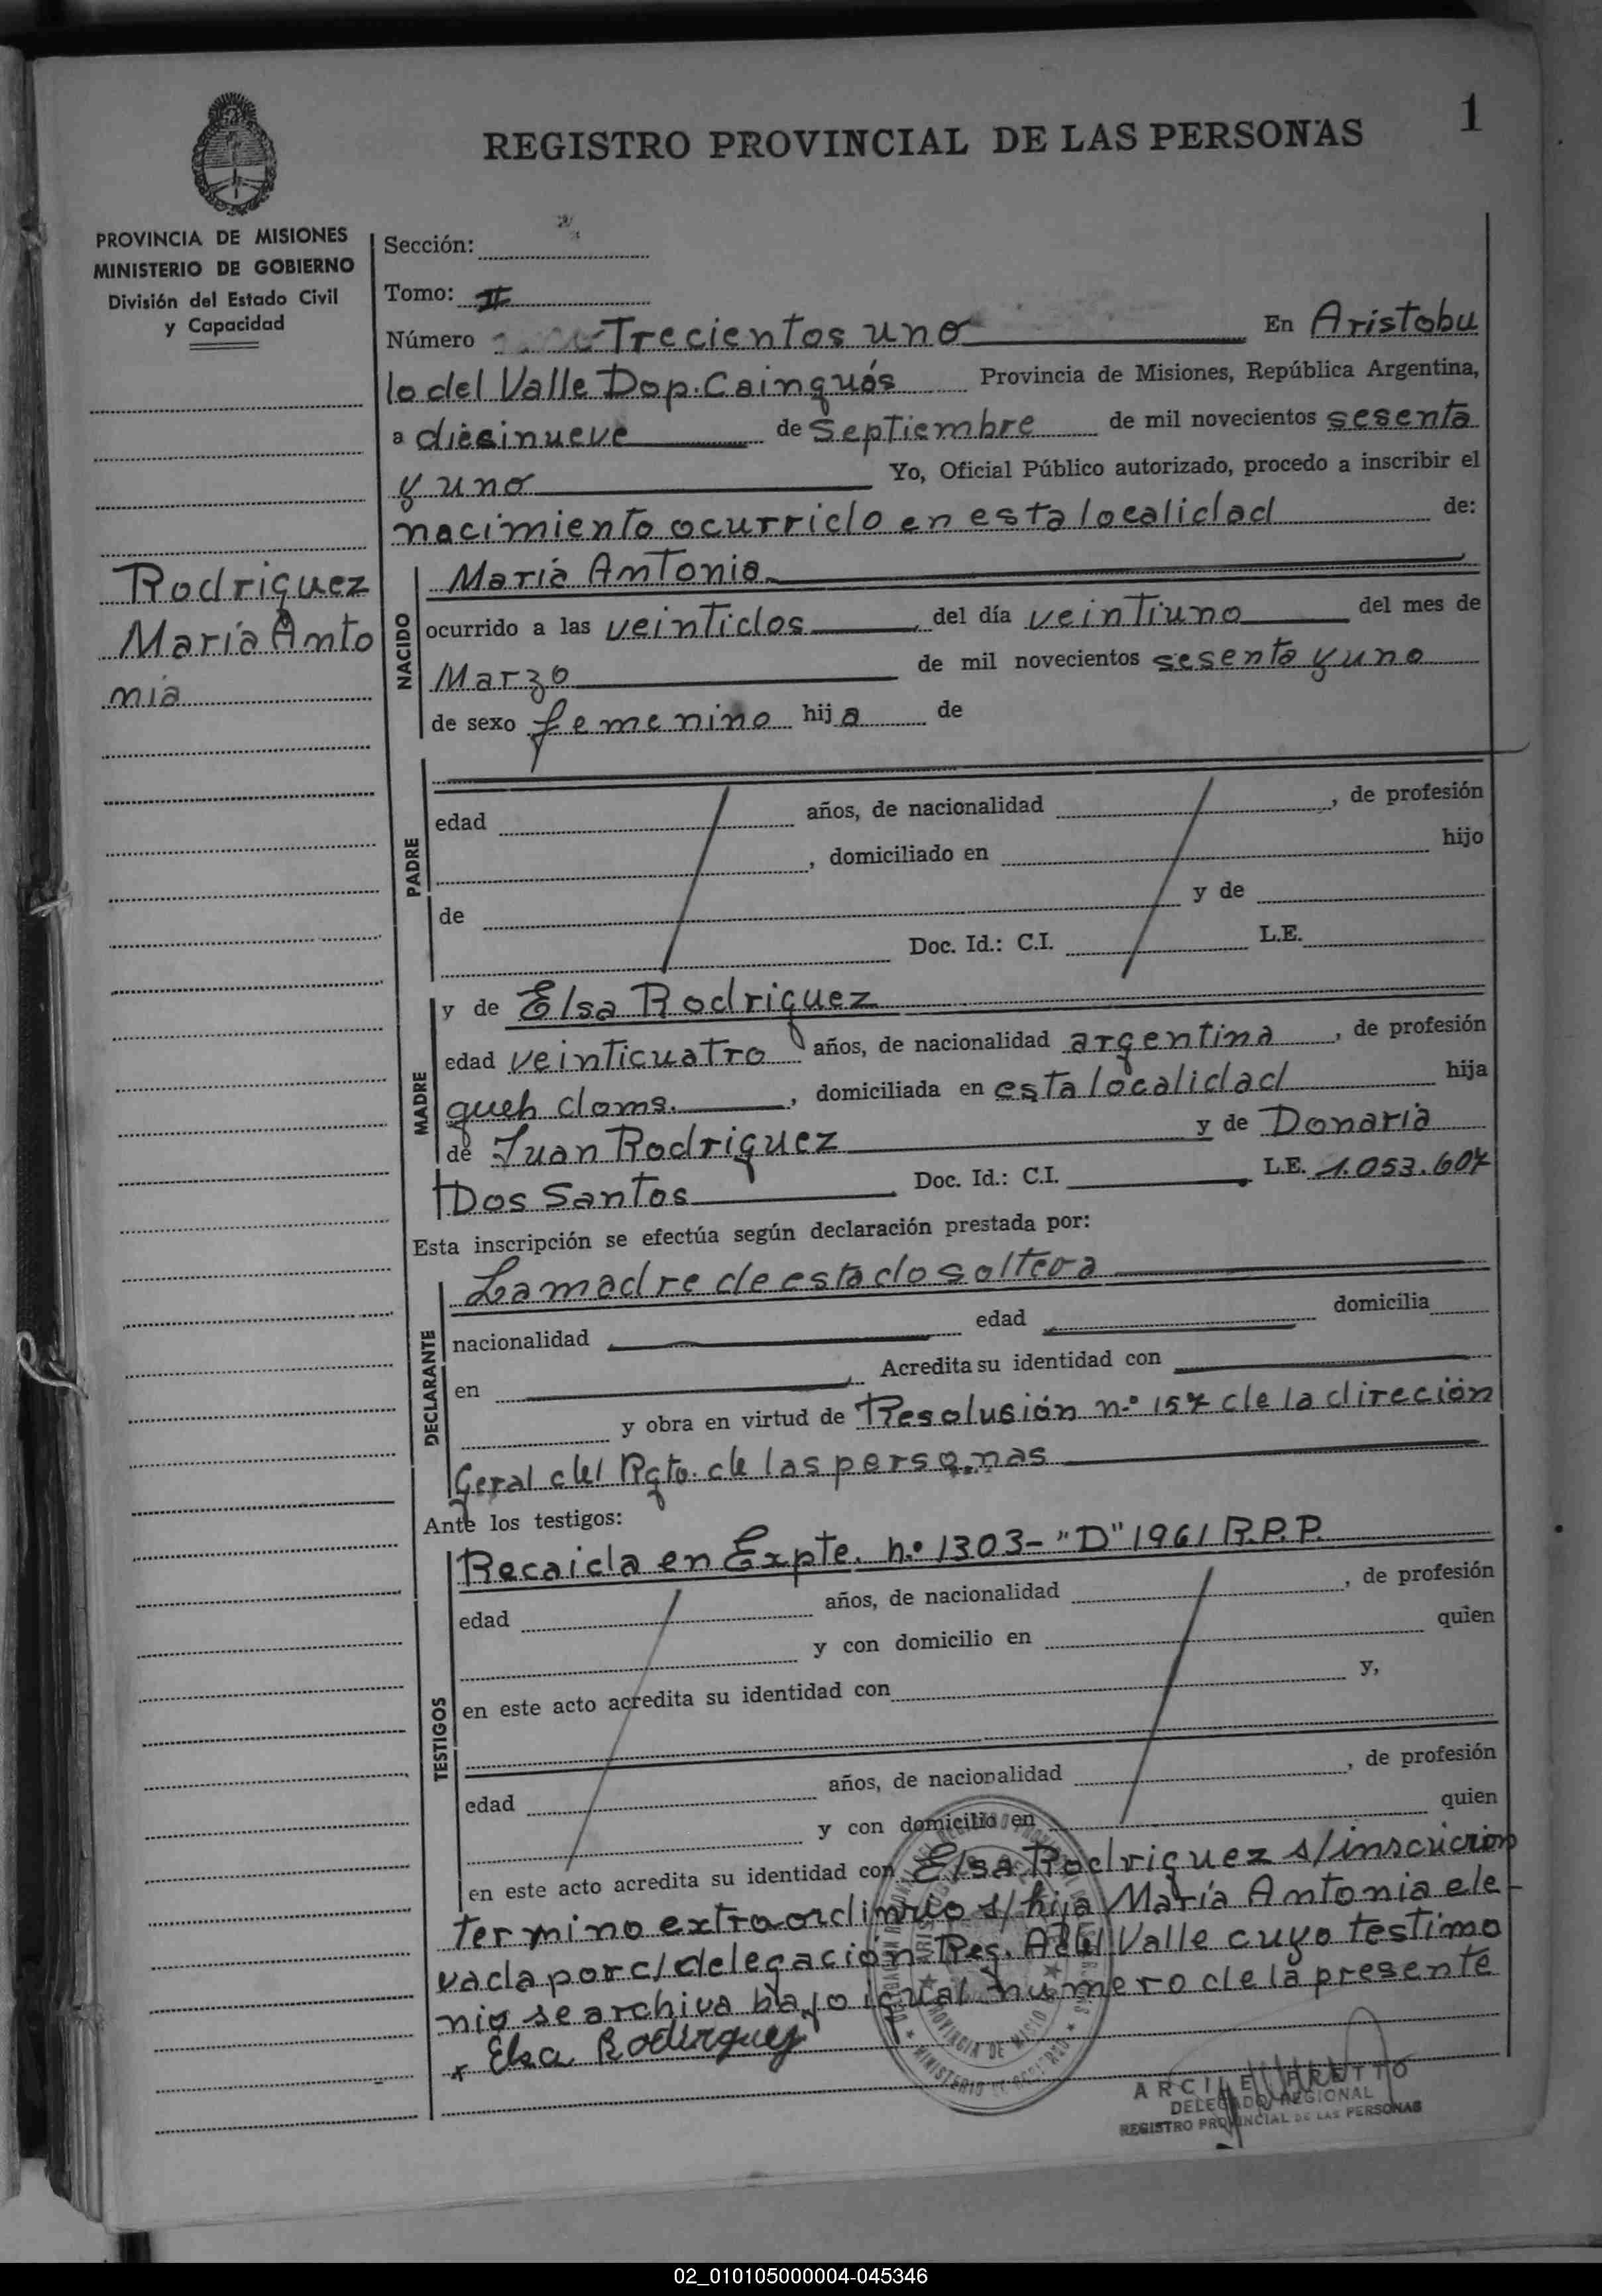 1
REGISTRO PROVINCIAL DE LAS PERSONAS
PROVINCIA DE MISIONES
MINISTERIO DE GOBIERNO
División del Estado Civil
y Capacidad
Rodriguez
María Anto
nia
Sección:
Tomo: II
Número Trecientos uno En Aristobu
lo del Valle Dop. Cainguás Provincia de Misiones, República Argentina,
a diesinueve de Septiembre de mil novecientos sesenta
y uno Yo, Oficial Público autorizado, procedo a inscribir el
nacimiento ocurrido en esta localidad de:
NACIDO
María Antonia
ocurrido a las veintidos del día veintiuno del mes de
Marzo de mil novecientos sesenta y uno
de sexo femenino hija de
PADRE
edad años, de nacionalidad , de profesión
, domiciliado en hijo
de y de
Doc. Id.: C.I. L.E.
MADRE
y de Elsa Rodriguez
edad veinticuatro años, de nacionalidad argentina , de profesión
queh doms. , domiciliada en esta localidad hija
de Juan Rodriguez y de Donaria
Dos Santos Doc. Id.: C.I. L.E. 1.053.607
Esta inscripción se efectúa según declaración prestada por:
DECLARANTE
La madre de estado soltera
nacionalidad edad domicilia
en Acredita su identidad con
y obra en virtud de Resolusión n.º 157 de la direción
Geral del Rgto. de las personas
Ante los testigos:
TESTIGOS
Recaida en Expte. n.º 1303-"D" 1961 R.P.P.
edad años, de nacionalidad , de profesión
y con domicilio en quien
en este acto acredita su identidad con y,
edad años, de nacionalidad , de profesión
y con domicilio en quien
en este acto acredita su identidad con Elsa Rodriguez s/inscricion
termino extraordinario s/hija María Antonia ele
vada por c/delegación Reg. A del Valle cuyo testimo
nio se archiva bajo igual numero de la presente
x Elsa Rodirguez
MINISTERIO DE GOBIERNO
DELEGADO REGIONAL
REGISTRO PROVINCIAL DE LAS PERSONAS
02_010105000004-045346